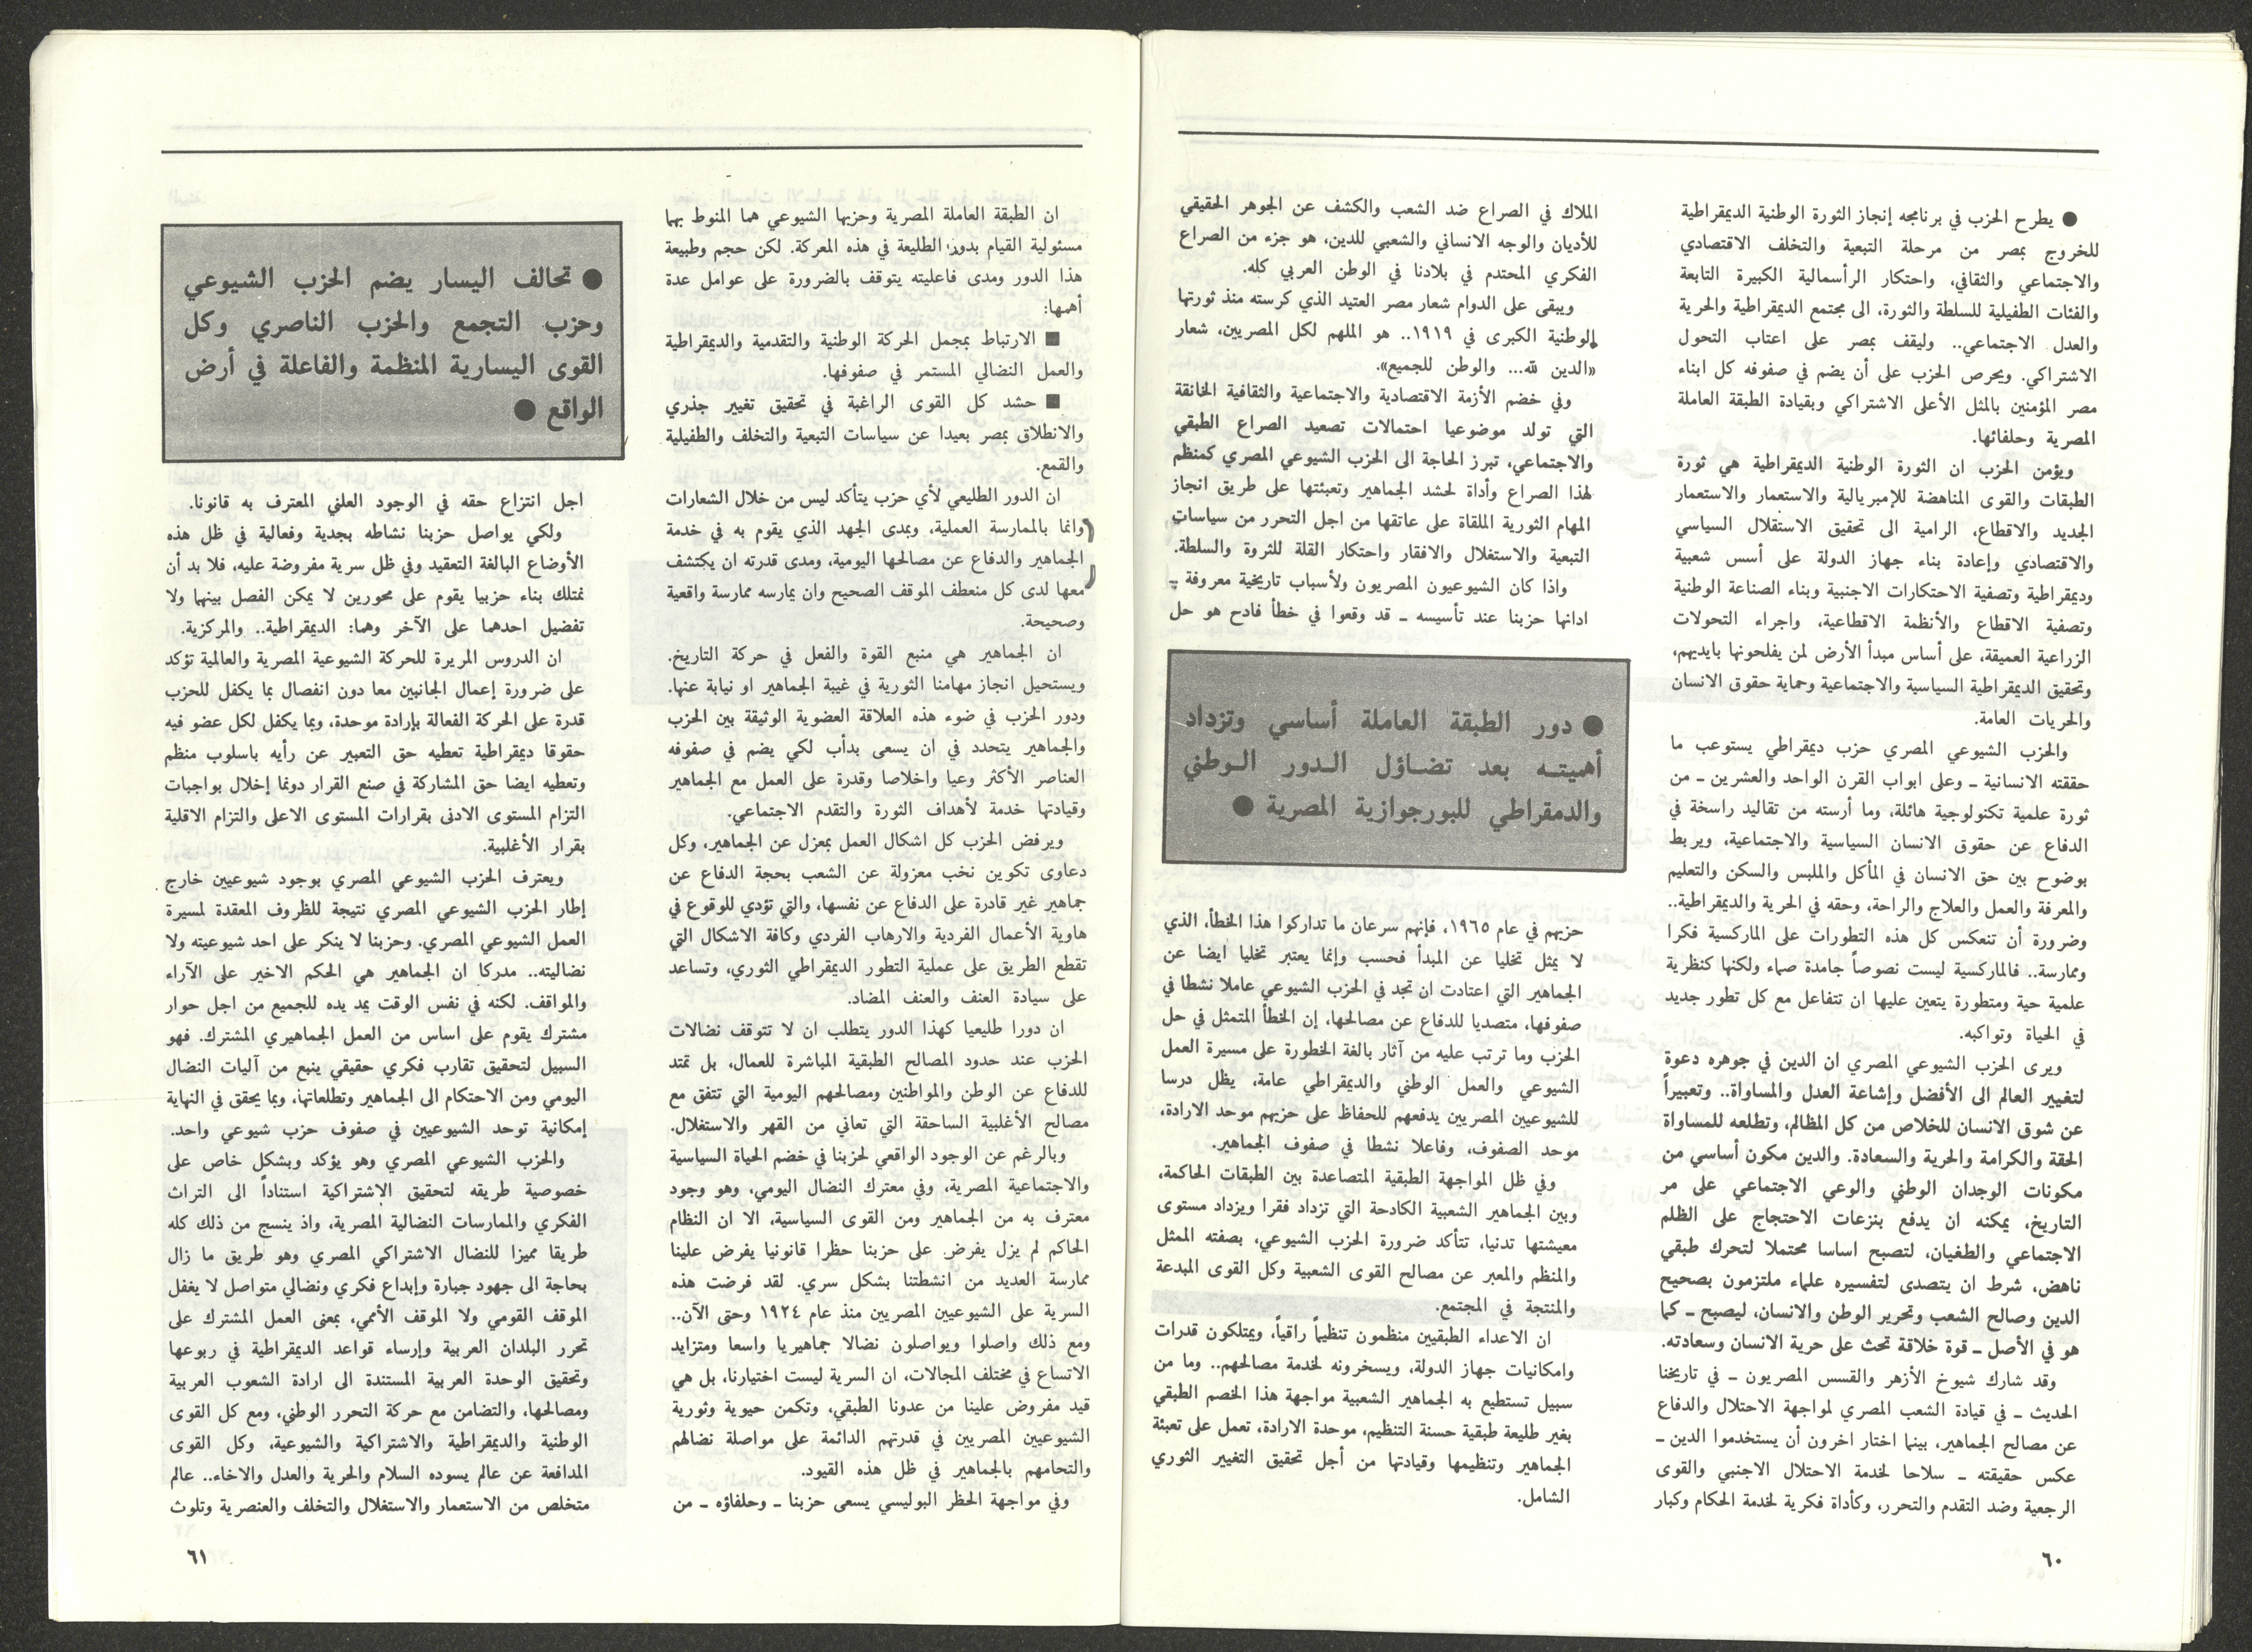 ● يطرح الحزب في برنامجه إنجاز الثورة الوطنية الديمقراطية
للخروج بمصر من مرحلة التبعية والتخلف الاقتصادي
والاجتماعي والثقافي، واحتكار الرأسمالية الكبيرة التابعة
والفئات الطفيلية للسلطة والثورة، الى مجتمع الديمقراطية والحرية
والعدل الاجتماعي.. وليقف بمصر على اعتاب التحول
الاشتراكي. ويحرص الحزب على أن يضم في صفوفه كل ابناء
مصر المؤمنين بالمثل الأعلى الاشتراكي وبقيادة الطبقة العاملة
المصرية وحلفائها.
ويؤمن الحزب ان الثورة الوطنية الديمقراطية هي ثورة
الطبقات والقوى المناهضة للإمبريالية والاستعمار والاستعمار
الجديد والاقطاع، الرامية الى تحقيق الاستقلال السياسي
والاقتصادي وإعادة بناء جهاز الدولة على أسس شعبية
وديمقراطية وتصفية الاحتكارات الاجنبية وبناء الصناعة الوطنية
وتصفية الاقطاع والأنظمة الاقطاعية، واجراء التحولات
الزراعية العميقة، على أساس مبدأ الأرض لمن يفلحونها بايديهم،
وتحقيق الديمقراطية السياسية والاجتماعية وحماية حقوق الانسان
والحريات العامة.
والحزب الشيوعي المصري حزب ديمقراطي يستوعب ما
حققته الانسانية ـ وعلى ابواب القرن الواحد والعشرين ـ من
ثورة علمية تكنولوجية هائلة، وما أرسته من تقاليد راسخة في
الدفاع عن حقوق الانسان السياسية والاجتماعية، ويربط
بوضوح بين حق الانسان في المأكل والملبس والسكن والتعليم
والمعرفة والعمل والعلاج والراحة، وحقه في الحرية والديمقراطية..
وضرورة أن تنعكس كل هذه التطورات على الماركسية فكرا
وممارسة.. فالماركسية ليست نصوصاً جامدة صماء ولكنها كنظرية
علمية حية ومتطورة يتعين عليها ان تتفاعل مع كل تطور جديد
في الحياة وتواكبه.
ويرى الحزب الشيوعي المصري ان الدين في جوهره دعوة
لتغيير العالم الى الأفضل وإشاعة العدل والمساواة.. وتعبيراً
عن شوق الانسان للخلاص من كل المظالم، وتطلعه للمساواة
الحقة والكرامة والحرية والسعادة. والدين مكون أساسي من
مكونات الوجدان الوطني والوعي الاجتماعي على مر
التاريخ، يمكنه ان يدفع بنزعات الاحتجاج على الظلم
الاجتماعي والطغيان، لتصبح اساسا محتملا لتحرك طبقي
ناهض، شرط ان يتصدى لتفسيره علماء ملتزمون بصحيح
الدين وصالح الشعب وتحرير الوطن والانسان، ليصبح ـ كما
هو في الأصل ـ قوة خلاقة تحث على حرية الانسان وسعادته.
وقد شارك شيوخ الأزهر والقسس المصريون ـ في تاريخنا
الحديث ـ في قيادة الشعب المصري لمواجهة الاحتلال والدفاع
عن مصالح الجماهير، بينما اختار اخرون أن يستخدموا الدين ـ
عكس حقيقته ـ سلاحا لخدمة الاحتلال الاجنبي والقوى
الرجعية وضد التقدم والتحرر، وكأداة فكرية لخدمة الحكام وكبار
الملاك في الصراع ضد الشعب والكشف عن الجوهر الحقيقي
للأديان والوجه الانساني والشعبي للدين، هو جزء من الصراع
الفكري المحتدم في بلادنا في الوطن العربي كله.
ويبقى على الدوام شعار مصر العتيد الذي كرسته منذ ثورتها
الوطنية الكبرى في ١٩١٩.. هو الملهم لكل المصريين، شعار
«الدين لله... والوطن للجميع».
وفي خضم الأزمة الاقتصادية والاجتماعية والثقافية الخانقة
التي تولد موضوعيا احتمالات تصعيد الصراع الطبقي
والاجتماعي، تبرز الحاجة الى الحزب الشيوعي المصري كمنظم
لهذا الصراع وأداة لحشد الجماهير وتعبئتها على طريق انجاز
المهام الثورية الملقاة على عاتقها من اجل التحرر من سياسات
التبعية والاستغلال والافقار واحتكار القلة للثروة والسلطة.
واذا كان الشيوعيون المصريون ولأسباب تاريخية معروفة ـ
ادانها حزبنا عند تأسيسه ـ قد وقعوا في خطأ فادح هو حل
● دور الطبقة العاملة أساسي وتزداد
أهميتـه بعد تضـاؤل الـدور الـوطني
والدمقراطي للبورجوازية المصرية ●
حزبهم في عام ١٩٦٥، فإنهم سرعان ما تداركوا هذا الخطأ، الذي
لا يمثل تخليا عن المبدأ فحسب وإنما يعتبر تخليا ايضا عن
الجماهير التي اعتادت ان تجد في الحزب الشيوعي عاملا نشطا في
صفوفها، متصديا للدفاع عن مصالحها، إن الخطأ المتمثل في حل
الحزب وما ترتب عليه من آثار بالغة الخطورة على مسيرة العمل
الشيوعي والعمل الوطني والديمقراطي عامة، يظل درسا
للشيوعيين المصريين يدفعهم للحفاظ على حزبهم موحد الارادة،
موحد الصفوف، وفاعلا نشطا في صفوف الجماهير.
وفي ظل المواجهة الطبقية المتصاعدة بين الطبقات الحاكمة،
وبين الجماهير الشعبية الكادحة التي تزداد فقرا ويزداد مستوى
معيشتها تدنيا، تتأكد ضرورة الحزب الشيوعي، بصفته الممثل
والمنظم والمعبر عن مصالح القوى الشعبية وكل القوى المبدعة
والمنتجة في المجتمع.
ان الاعداء الطبقيين منظمون تنظيماً راقياً، ويمتلكون قدرات
وامكانيات جهاز الدولة، ويسخرونه لخدمة مصالحهم.. وما من
سبيل تستطيع به الجماهير الشعبية مواجهة هذا الخصم الطبقي
بغير طليعة طبقية حسنة التنظيم، موحدة الارادة، تعمل على تعبئة
الجماهير وتنظيمها وقيادتها من أجل تحقيق التغيير الثوري
الشامل.
٦٠
ان الطبقة العاملة المصرية وحزبها الشيوعي هما المنوط بهما
مسئولية القيام بدور الطليعة في هذه المعركة. لكن حجم وطبيعة
هذا الدور ومدى فاعليته يتوقف بالضرورة على عوامل عدة
أهمها:
■ الارتباط بمجمل الحركة الوطنية والتقدمية والديمقراطية
والعمل النضالي المستمر في صفوفها.
■ حشد كل القوى الراغبة في تحقيق تغيير جذري
والانطلاق بمصر بعيدا عن سياسات التبعية والتخلف والطفيلية
والقمع.
ان الدور الطليعي لأي حزب يتأكد ليس من خلال الشعارات
وانما بالممارسة العملية، وبمدى الجهد الذي يقوم به في خدمة
الجماهير والدفاع عن مصالحها اليومية، ومدى قدرته ان يكتشف
معها لدى كل منعطف الموقف الصحيح وان يمارسه ممارسة واقعية
وصحيحة.
ان الجماهير هي منبع القوة والفعل في حركة التاريخ.
ويستحيل انجاز مهامنا الثورية في غيبة الجماهير او نيابة عنها.
ودور الحزب في ضوء هذه العلاقة العضوية الوثيقة بين الحزب
والجماهير يتحدد في ان يسعى بدأب لكي يضم في صفوفه
العناصر الأكثر وعيا واخلاصا وقدرة على العمل مع الجماهير
وقيادتها خدمة لأهداف الثورة والتقدم الاجتماعي.
ويرفض الحزب كل اشكال العمل بمعزل عن الجماهير، وكل
دعاوى تكوين نخب معزولة عن الشعب بحجة الدفاع عن
جماهير غير قادرة على الدفاع عن نفسها، والتي تؤدي للوقوع في
هاوية الأعمال الفردية والارهاب الفردي وكافة الاشكال التي
تقطع الطريق على عملية التطور الديمقراطي الثوري، وتساعد
على سيادة العنف والعنف المضاد.
ان دورا طليعيا كهذا الدور يتطلب ان لا تتوقف نضالات
الحزب عند حدود المصالح الطبقية المباشرة للعمال، بل تمتد
للدفاع عن الوطن والمواطنين ومصالحهم اليومية التي تتفق مع
مصالح الأغلبية الساحقة التي تعاني من القهر والاستغلال.
وبالرغم عن الوجود الواقعي لحزبنا في خضم الحياة السياسية
والاجتماعية المصرية، وفي معترك النضال اليومي، وهو وجود
معترف به من الجماهير ومن القوى السياسية، الا ان النظام
الحاكم لم يزل يفرض على حزبنا حظرا قانونيا يفرض علينا
ممارسة العديد من انشطتنا بشكل سري. لقد فرضت هذه
السرية على الشيوعيين المصريين منذ عام ١٩٢٤ وحتى الآن..
ومع ذلك واصلوا ويواصلون نضالا جماهيريا واسعا ومتزايد
الاتساع في مختلف المجالات، ان السرية ليست اختيارنا، بل هي
قيد مفروض علينا من عدونا الطبقي، وتكمن حيوية وثورية
الشيوعيين المصريين في قدرتهم الدائمة على مواصلة نضالهم
والتحامهم بالجماهير في ظل هذه القيود.
وفي مواجهة الحظر البوليسي يسعى حزبنا ـ وحلفاؤه ـ من
● تحالف اليسار يضم الحزب الشيوعي
وحزب التجمع والحزب الناصري وكل
القوى اليسارية المنظمة والفاعلة في أرض
الواقع ●
اجل انتزاع حقه في الوجود العلني المعترف به قانونا.
ولكي يواصل حزبنا نشاطه بجدية وفعالية في ظل هذه
الأوضاع البالغة التعقيد وفي ظل سرية مفروضة عليه، فلا بد أن
نمتلك بناء حزبيا يقوم على محورين لا يمكن الفصل بينهما ولا
تفضيل احدهما على الآخر وهما: الديمقراطية.. والمركزية.
ان الدروس المريرة للحركة الشيوعية المصرية والعالمية تؤكد
على ضرورة إعمال الجانبين معا دون انفصال بما يكفل للحزب
قدرة على الحركة الفعالة بإرادة موحدة، وبما يكفل لكل عضو فيه
حقوقا ديمقراطية تعطيه حق التعبير عن رأيه باسلوب منظم
وتعطيه ايضا حق المشاركة في صنع القرار دونما إخلال بواجبات
التزام المستوى الادنى بقرارات المستوى الاعلى والتزام الاقلية
بقرار الأغلبية.
ويعترف الحزب الشيوعي المصري بوجود شيوعيين خارج
إطار الحزب الشيوعي المصري نتيجة للظروف المعقدة لمسيرة
العمل الشيوعي المصري. وحزبنا لا ينكر على احد شيوعيته ولا
نضاليته.. مدركا ان الجماهير هي الحكم الاخير على الآراء
والمواقف. لكنه في نفس الوقت يمد يده للجميع من اجل حوار
مشترك يقوم على اساس من العمل الجماهيري المشترك. فهو
السبيل لتحقيق تقارب فكري حقيقي ينبع من آليات النضال
اليومي ومن الاحتكام الى الجماهير وتطلعاتها، وبما يحقق في النهاية
إمكانية توحد الشيوعيين في صفوف حزب شيوعي واحد.
والحزب الشيوعي المصري وهو يؤكد وبشكل خاص على
خصوصية طريقه لتحقيق الاشتراكية استناداً الى التراث
الفكري والممارسات النضالية المصرية، واذ ينسج من ذلك كله
طريقا مميزا للنضال الاشتراكي المصري وهو طريق ما زال
بحاجة الى جهود جبارة وإبداع فكري ونضالي متواصل لا يغفل
الموقف القومي ولا الموقف الأممي، بمعنى العمل المشترك على
تحرر البلدان العربية وإرساء قواعد الديمقراطية في ربوعها
وتحقيق الوحدة العربية المستندة الى ارادة الشعوب العربية
ومصالحها، والتضامن مع حركة التحرر الوطني، ومع كل القوى
الوطنية والديمقراطية والاشتراكية والشيوعية، وكل القوى
المدافعة عن عالم يسوده السلام والحرية والعدل والاخاء.. عالم
متخلص من الاستعمار والاستغلال والتخلف والعنصرية وتلوث
٦١